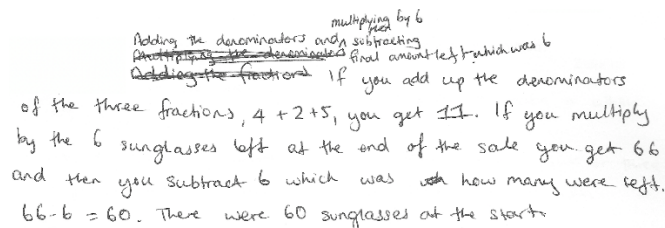 multiplying by 6
Adding the denominators and then subtracting
Multiplying the denominators final amount left which was 6
Adding the fractions If you add up the denominators
of the three fractions, 4 + 2 + 5, you get 11. If you multiply
by the 6 sunglasses left at the end of the sale you get 66
and then you subtract 6 which was how many were left.
66-6 = 60. There were 60 sunglasses at the start.